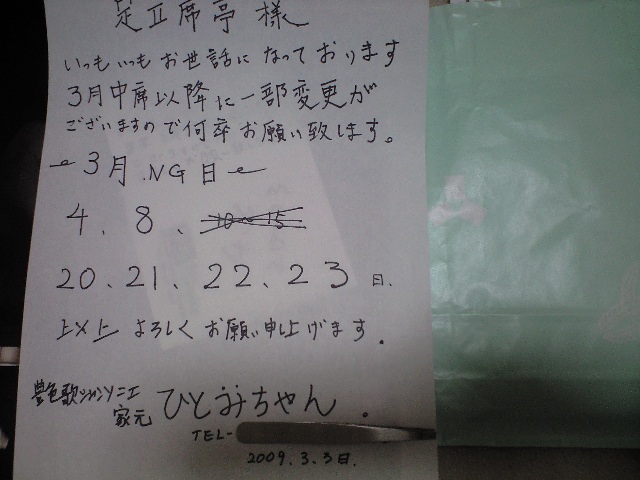 足立席亭 様
いつもいつもお世話になっております
3月中席以降に一部変更が
ございますので何卒お願い致します。
3月 NG日
4、8、10〜15
20、21、22、23日、
以上 よろしくお願い申上げます。
艶色歌シャンソニエ
家元 ひとみちゃん。
TEL-
2009.3.3日.